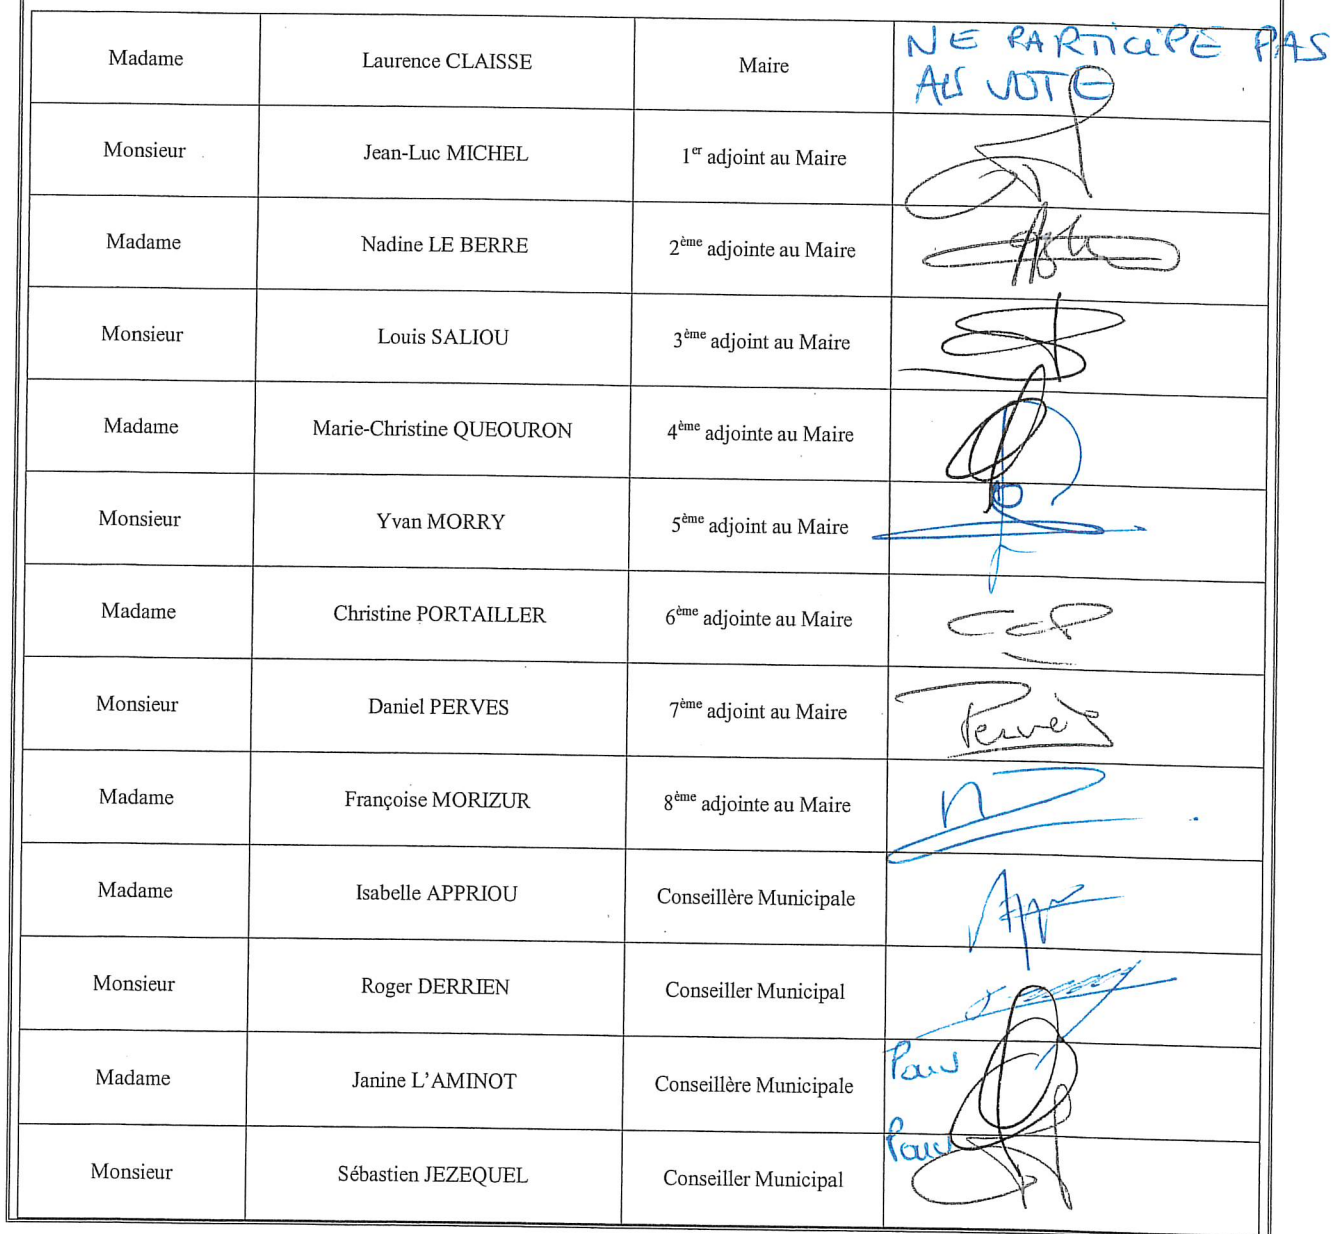 Madame Laurence CLAISSE Maire NE PARTICIPE PAS
AU VOTE
Monsieur Jean-Luc MICHEL 1er adjoint au Maire
Madame Nadine LE BERRE 2ème adjointe au Maire
Monsieur Louis SALIOU 3ème adjoint au Maire
Madame Marie-Christine QUEOURON 4ème adjointe au Maire
Monsieur Yvan MORRY 5ème adjoint au Maire
Madame Christine PORTAILLER 6ème adjointe au Maire
Monsieur Daniel PERVES 7ème adjoint au Maire Perves
Madame Françoise MORIZUR 8ème adjointe au Maire
Madame Isabelle APPRIOU Conseillère Municipale
Monsieur Roger DERRIEN Conseiller Municipal
Madame Janine L'AMINOT Conseillère Municipale Pour
Monsieur Sébastien JEZEQUEL Conseiller Municipal Pour